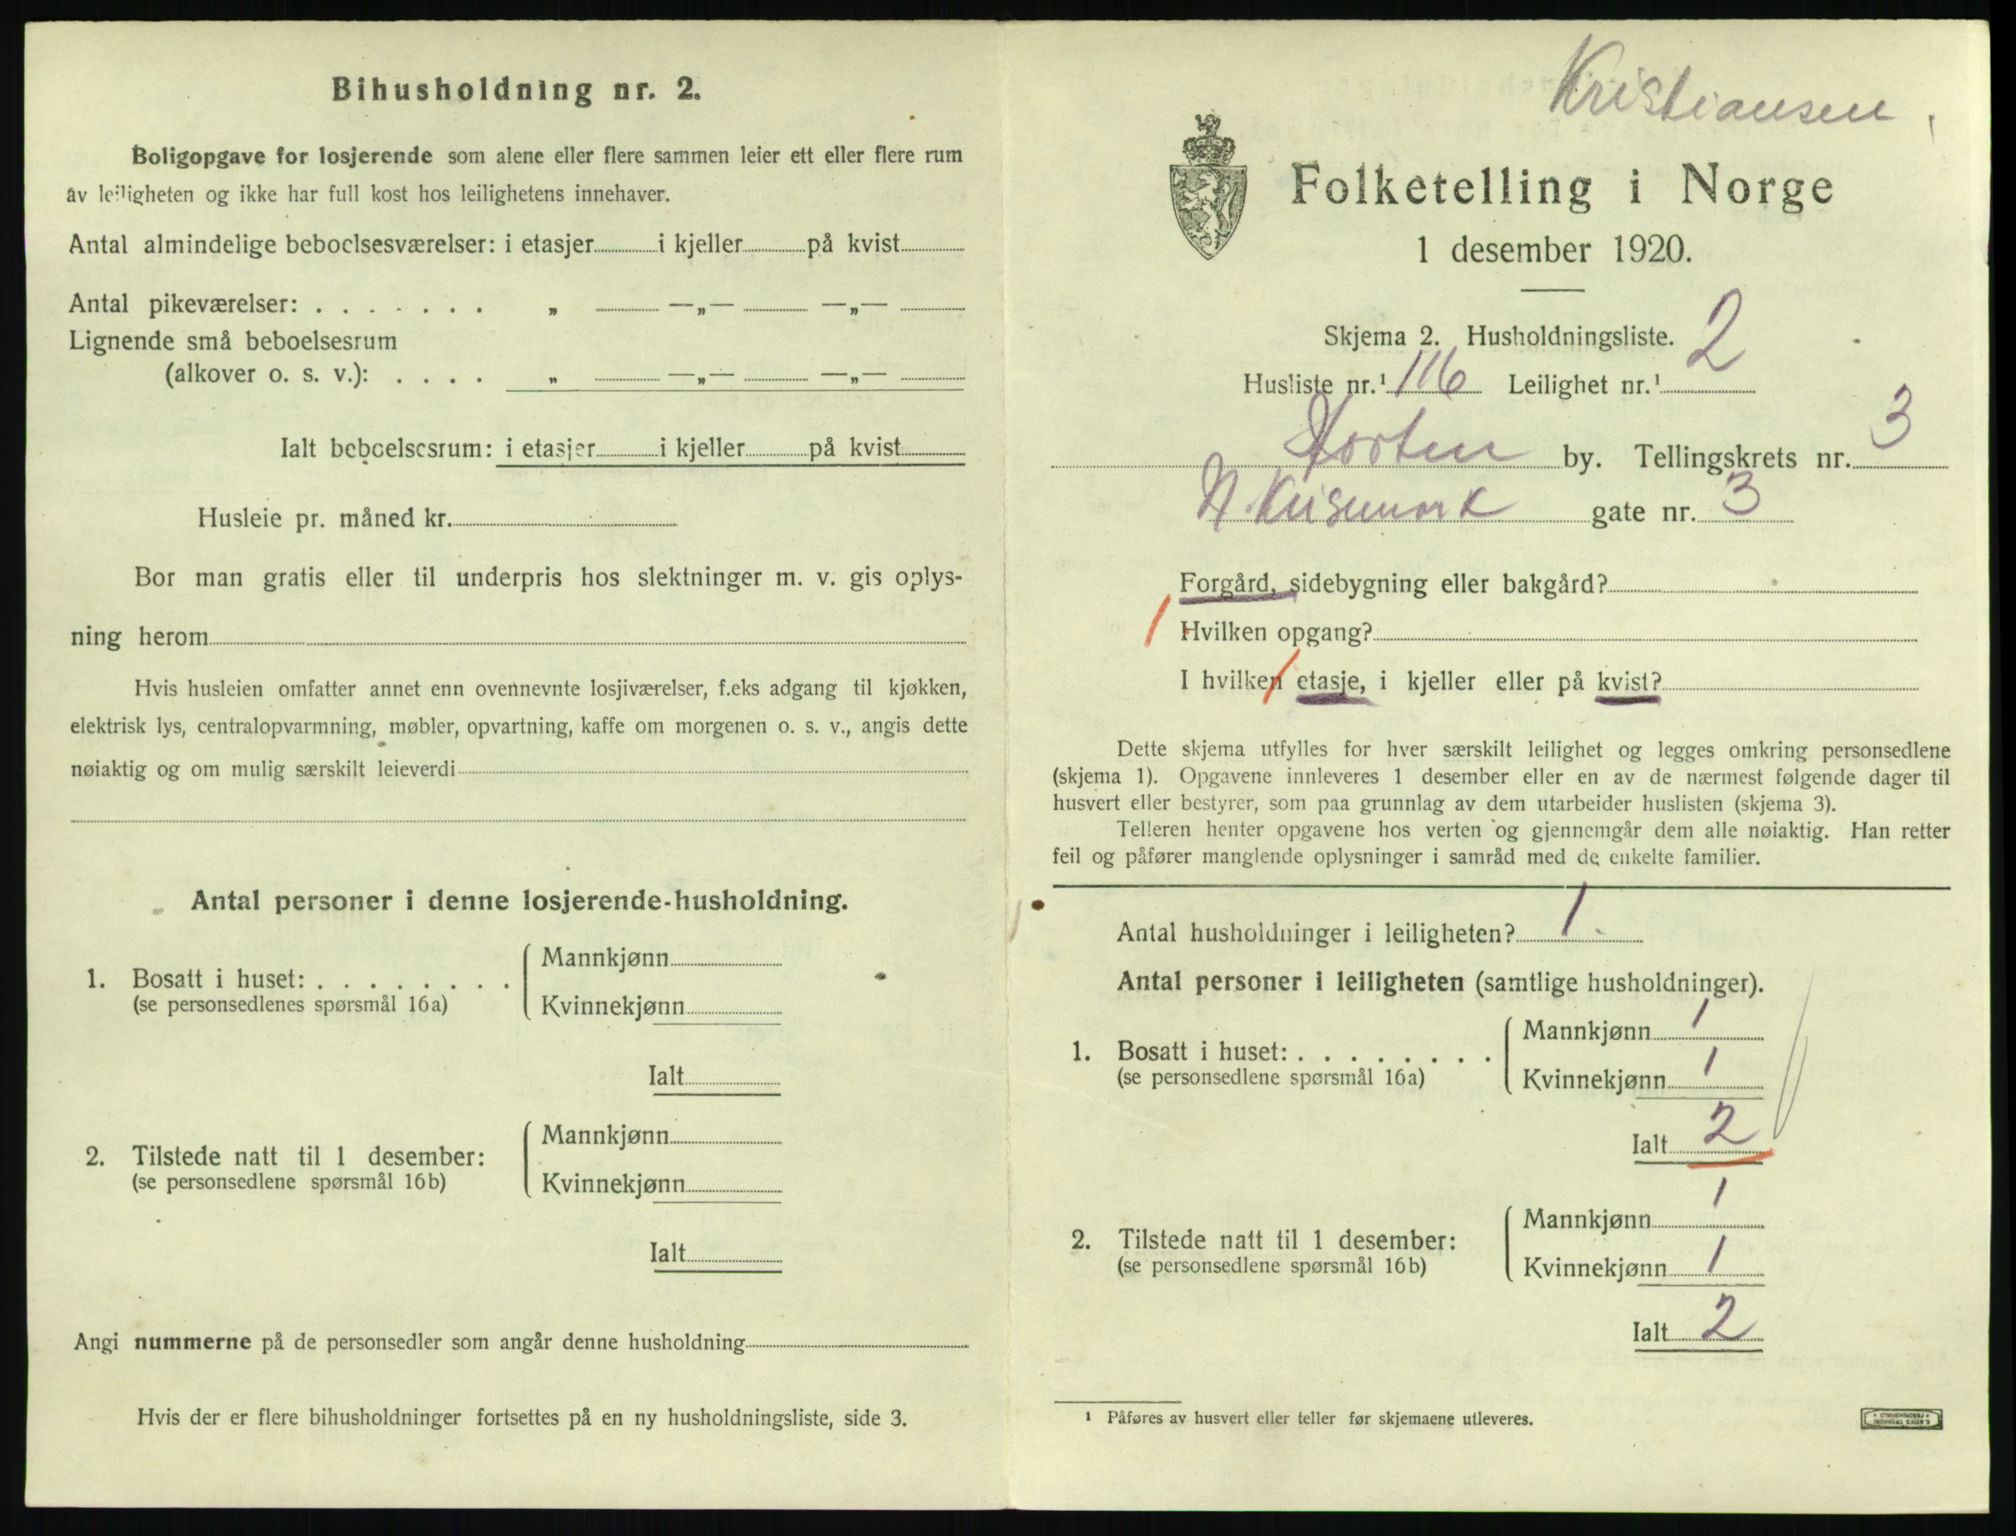 Bihusholdning nr. 2.
Boligopgave for losjerende som alene eller flere sammen leier ett eller flere rum
av leiligheten og ikke har full kost hos leilighetens innehaver.
Antal almindelige beboelsesværelser: i etasjer i kjeller på kvist
Antal pikeværelser: . . . . . . . „ —„— —„—
Lignende små beboelsesrum
(alkover o. s. v.): . . . . „ —„— —„—
Ialt beboelsesrum: i etasjer i kjeller på kvist
Husleie pr. måned kr.
Bor man gratis eller til underpris hos slektninger m. v. gis oplys-
ning herom
Hvis husleien omfatter annet enn ovennevnte losjiværelser, f.eks adgang til kjøkken,
elektrisk lys, centralopvarmning, møbler, opvartning, kaffe om morgenen o. s. v., angis dette
nøiaktig og om mulig særskilt leieverdi
Antal personer i denne losjerende-husholdning.
1. Bosatt i huset: . . . . . . . .
(se personsedlenes spørsmål 16a)
Mannkjønn
Kvinnekjønn
Ialt
2. Tilstede natt til 1 desember:
(se personsedlene spørsmål 16b)
Mannkjønn
Kvinnekjønn
Ialt
Angi nummerne på de personsedler som angår denne husholdning
Hvis der er flere bihusholdninger fortsettes på en ny husholdningsliste, side 3.
Kristiansen
Folketelling i Norge
1 desember 1920.
Skjema 2. Husholdningsliste.
Husliste nr.¹ 116 Leilighet nr.¹ 2
Horten by. Tellingskrets nr. 3
N. Keisemark gate nr. 3
Forgård, sidebygning eller bakgård?
1 Hvilken opgang?
I hvilken / etasje, i kjeller eller på kvist?
Dette skjema utfylles for hver særskilt leilighet og legges omkring personsedlene
(skjema 1). Opgavene innleveres 1 desember eller en av de nærmest følgende dager til
husvert eller bestyrer, som paa grunnlag av dem utarbeider huslisten (skjema 3).
Telleren henter opgavene hos verten og gjennemgår dem alle nøiaktig. Han retter
feil og påfører manglende oplysninger i samråd med de enkelte familier.
Antal husholdninger i leiligheten? 1.
Antal personer i leiligheten (samtlige husholdninger).
1. Bosatt i huset: . . . . . . . .
(se personsedlene spørsmål 16a)
Mannkjønn 1
Kvinnekjønn 1
Ialt 2
2. Tilstede natt til 1 desember:
(se personsedlene spørsmål 16b)
Mannkjønn 1
Kvinnekjønn 1
Ialt 2
¹ Påføres av husvert eller teller før skjemaene utleveres.